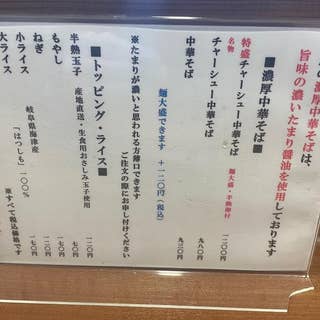 の濃厚中華そばは、
旨味の濃いたまり醤油を使用しております
■濃厚中華そば■
名物
特盛チャーシュー中華そば 麺大盛・半熟卵付 一二〇〇円
チャーシュー中華そば 九八〇円
中華そば 九三〇円
麺大盛できます +一二〇円(税込)
※たまりが濃いと思われる方薄口できます
ご注文の際にお申し付けください
■トッピング・ライス■
半熟玉子 産地直送・生食用おさしみ玉子使用 一二〇円
もやし 一七〇円
ねぎ 一七〇円
小ライス 岐阜県海津産 一七〇円
大ライス 「はつしも」一〇〇%
※すべて税込価格です